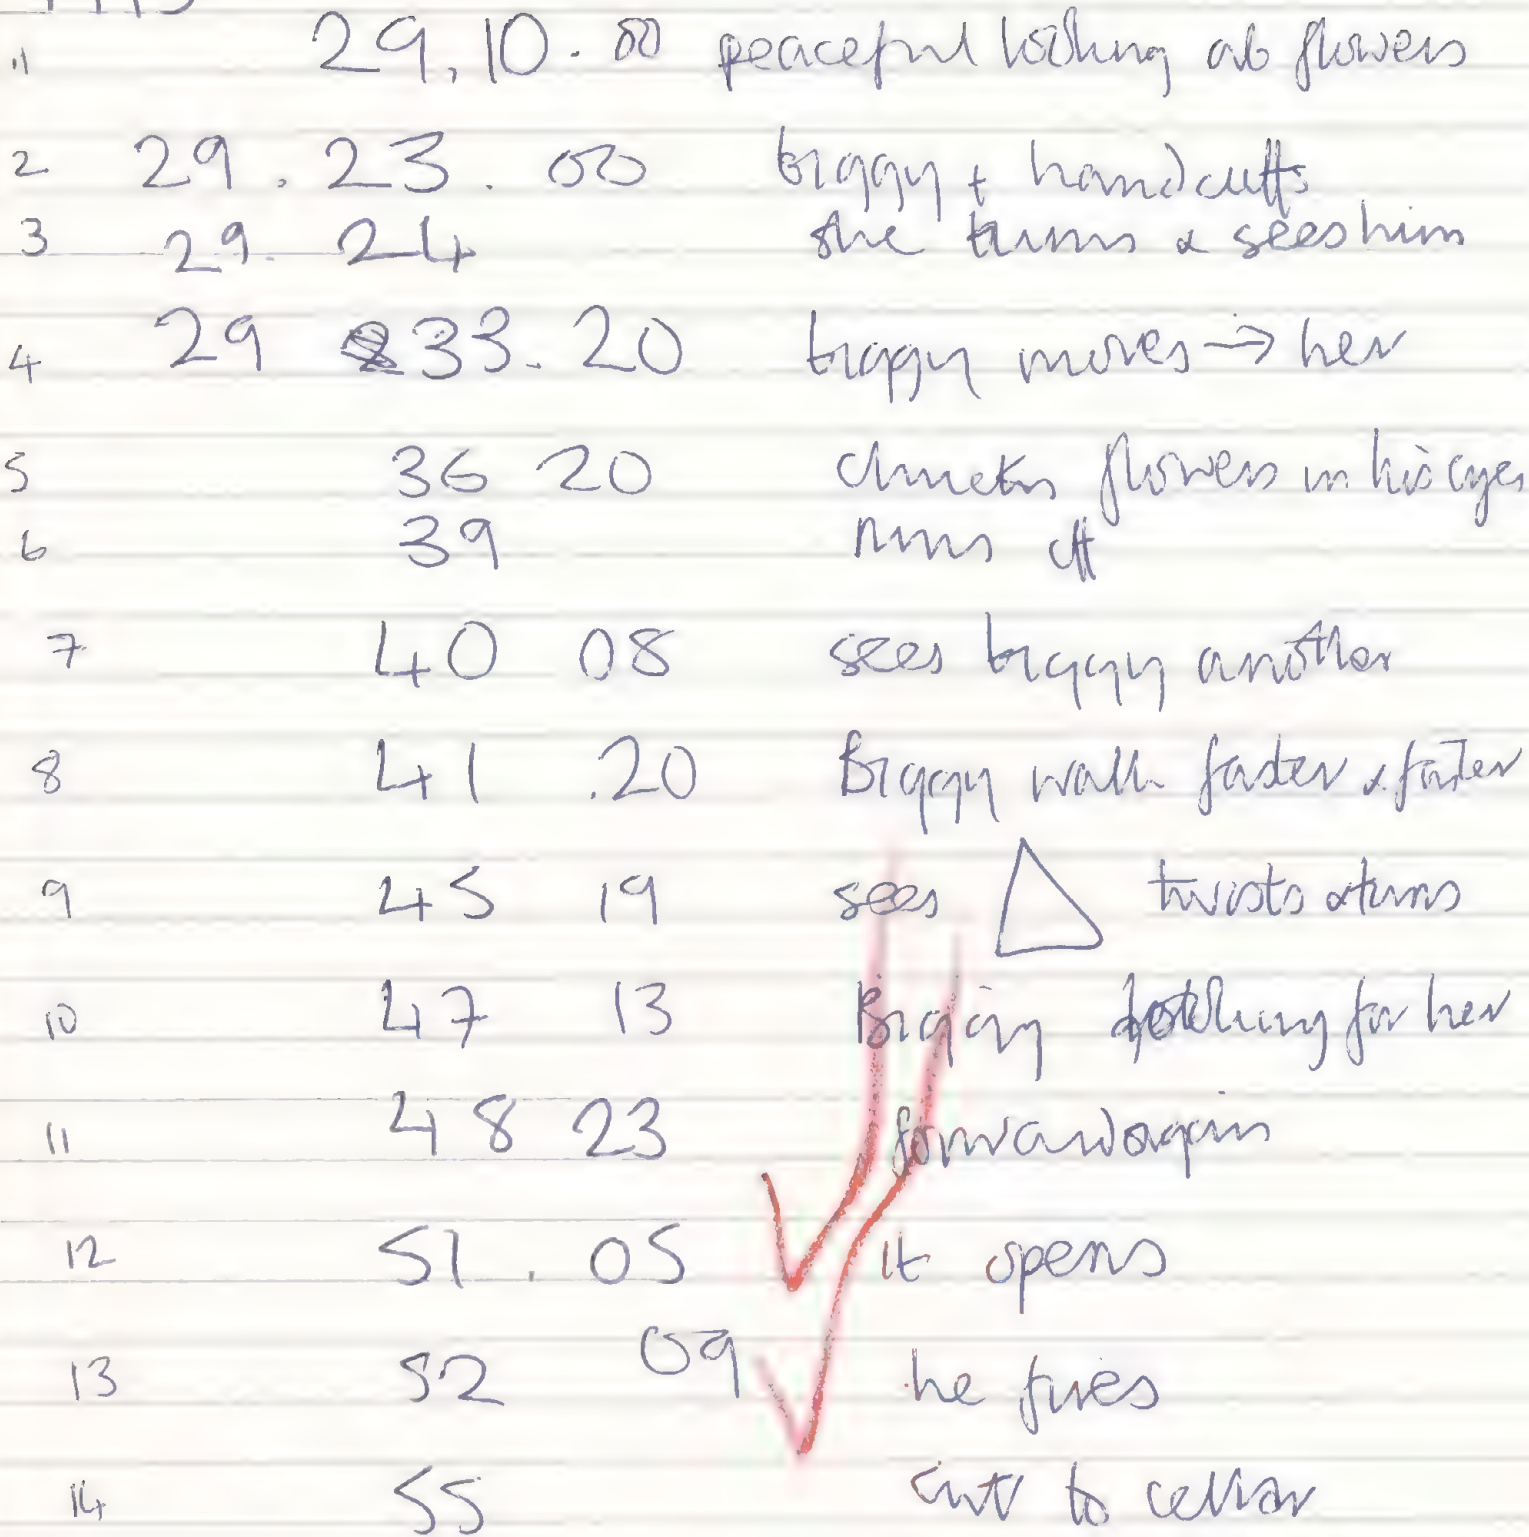 11 29.10.00 peaceful looking at flowers
2 29.23.00 biggy + handcuffs
3 29.24 she turns & sees him
4 29 33.20 biggy moves → her
5 36 20 chucks flowers in his eyes
6 39 runs off
7 40 08 sees biggy another
8 41.20 Biggy walk faster & faster
9 45 19 sees △ twists & turns
10 47 13 Biggy looking for her
11 48 23 forward again
12 51.05 it opens
13 52 09 he fires
14 55 cut to cellar